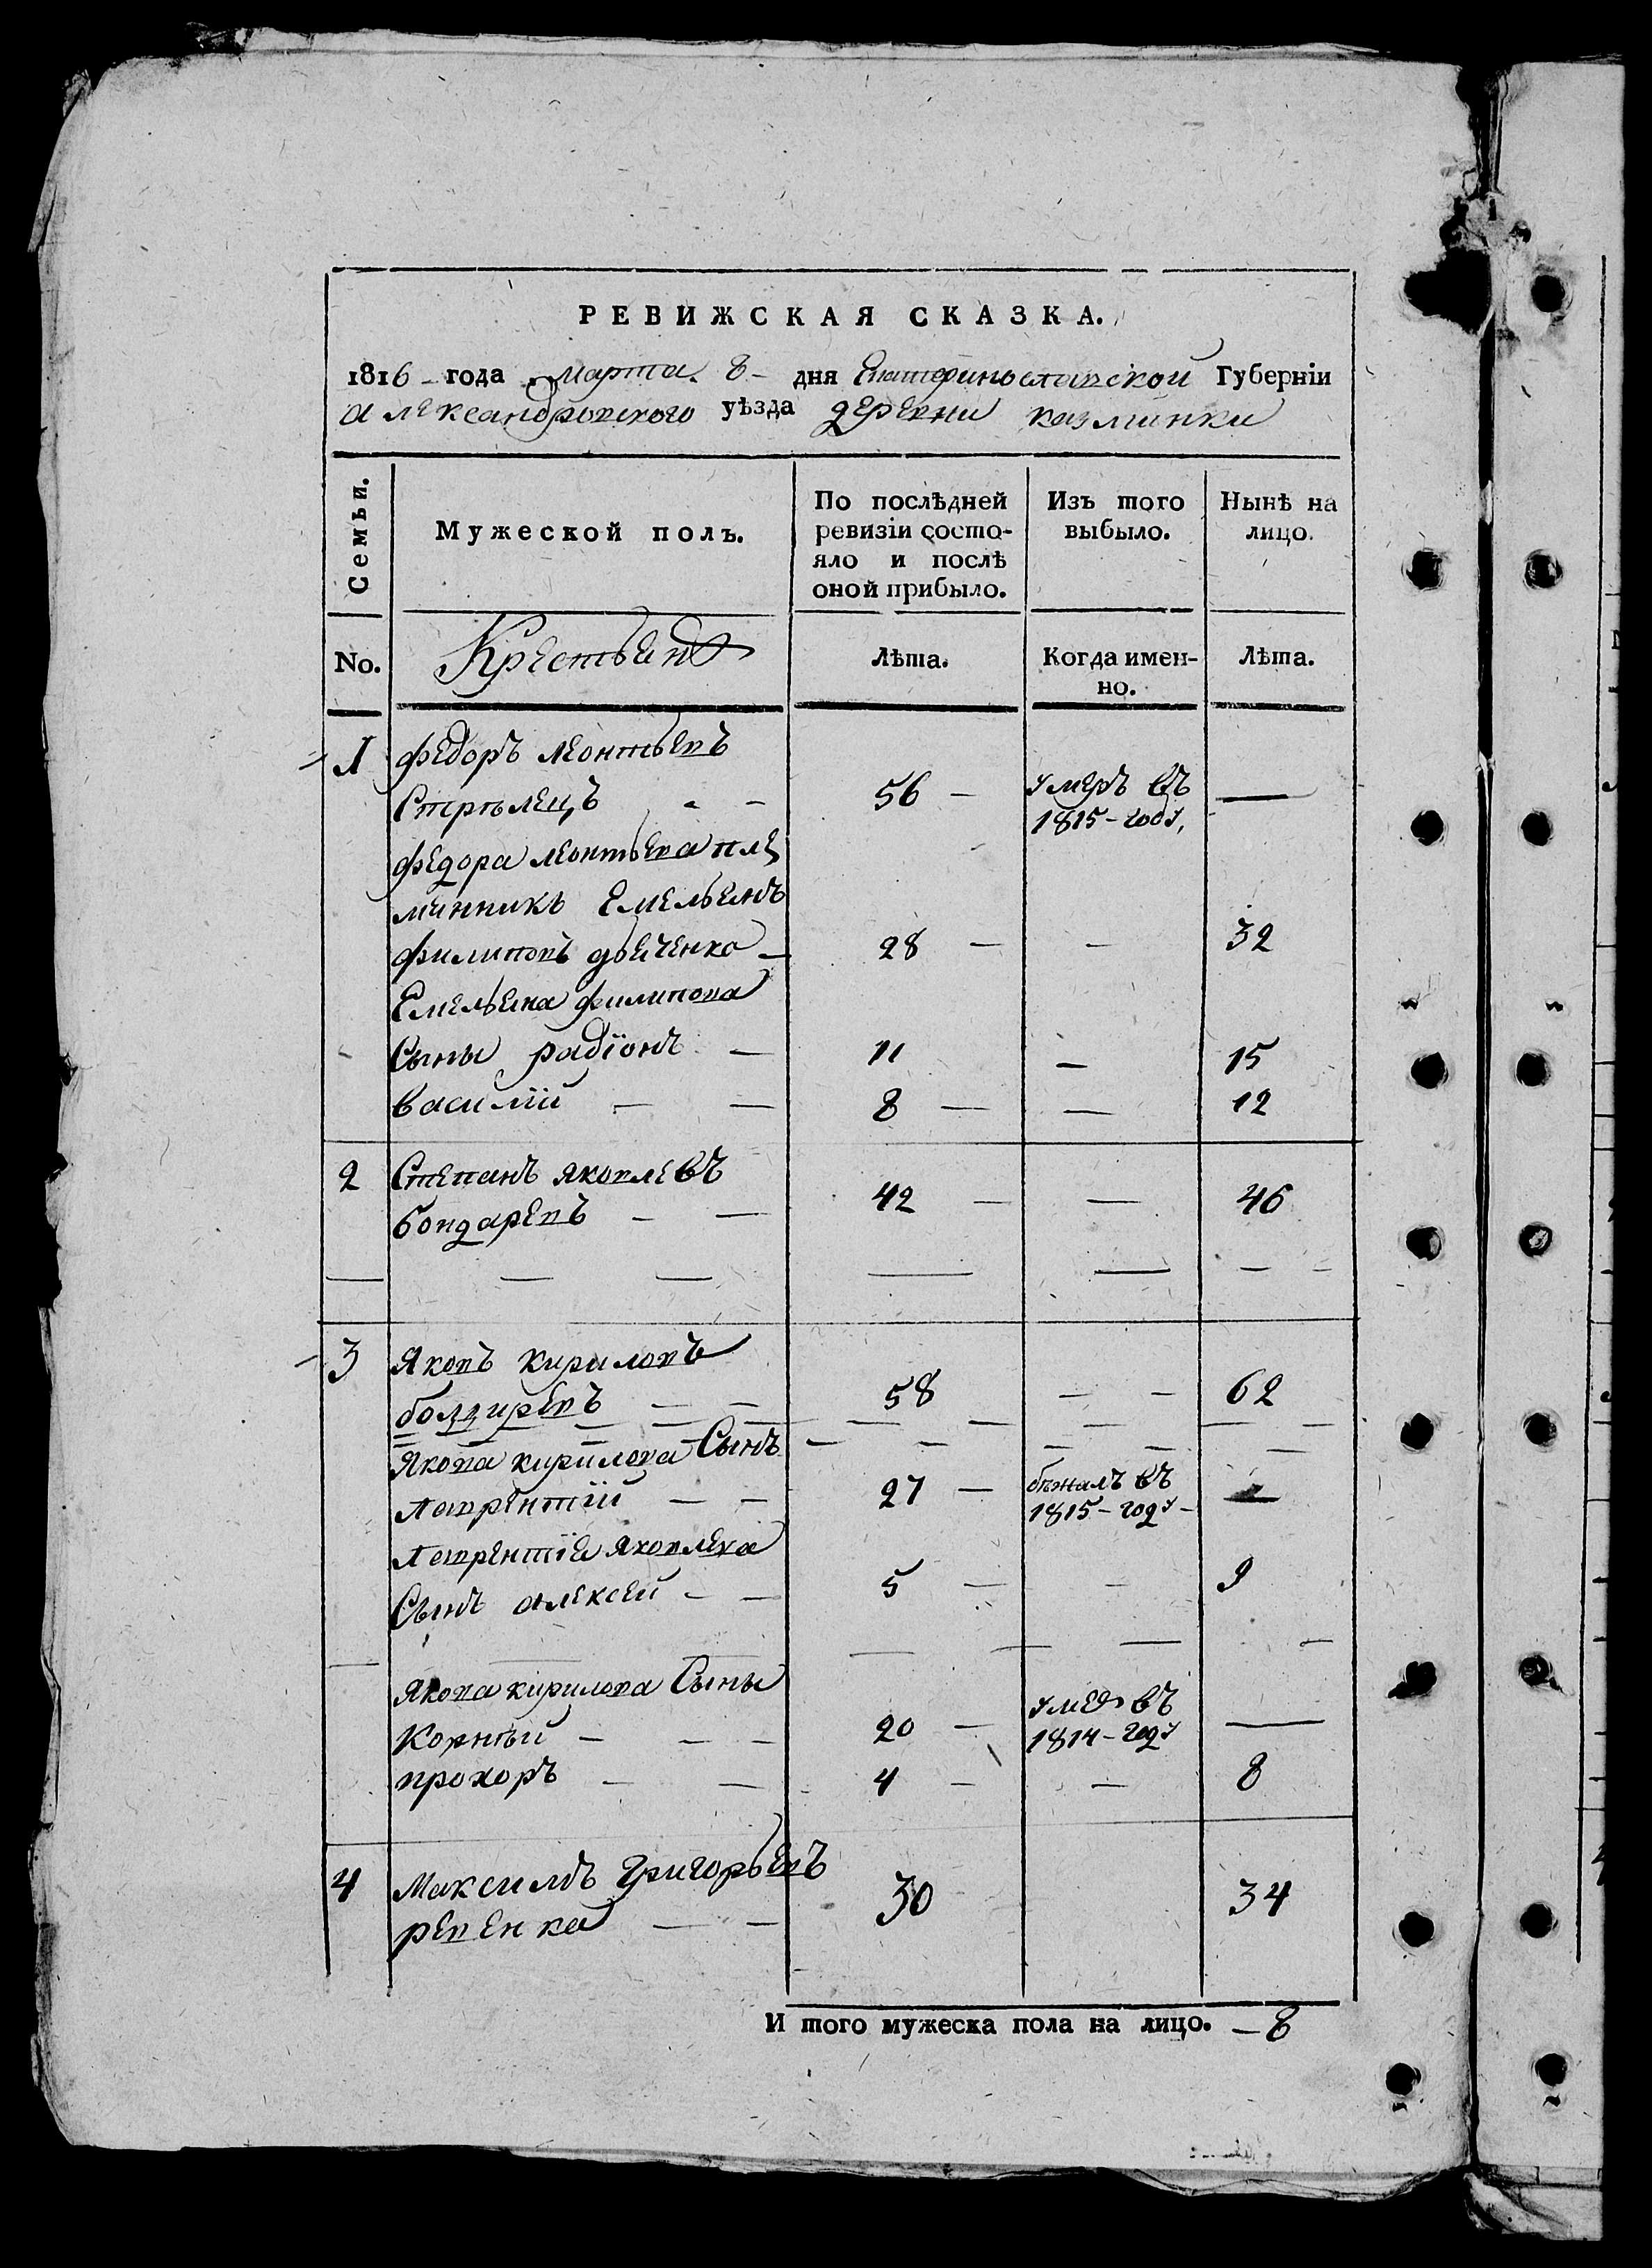 РЕВИЖСКАЯ СКАЗКА.
1816 - года марта 8 - дня Екатеринославской Губерніи
Александровского уѣзда деревни казминки
Семьи.
Мужеской полъ.
По послѣдней ревизіи состояло и послѣ оной прибыло.
Изъ того выбыло.
Нынѣ на лицо.
No. Крестьенъ Лѣта. Когда именно. Лѣта.
1 федоръ леонтьевъ
Стрѣлецъ - - 56 - умеръ въ 1815 - году, —
федора леонтьева пле
мянникъ Емельенъ
филиповъ дьеченко — 28 — — 32
Емельена филипова
Сыны радіонъ — 11 — 15
василій — — 8 — — 12
2 Степанъ яковлевъ
бондаревъ — — 42 — — 46
3 Яковъ кириловъ
болдиревъ — — 58 — — 62
Якова кирилова Сынъ
лаврентій — — 27 — бѣжалъ въ 1815 - году - —
лаврентіе яковлева
Сынъ алексей — — 5 — — 9
Якова кирилова Сыны
Корнѣй — — — 20 — умеръ въ 1814 - году —
прохоръ — — 4 — — 8
4 Максимъ григорьевъ
ревенка — — 30 34
И того мужеска пола на лицо. — 8